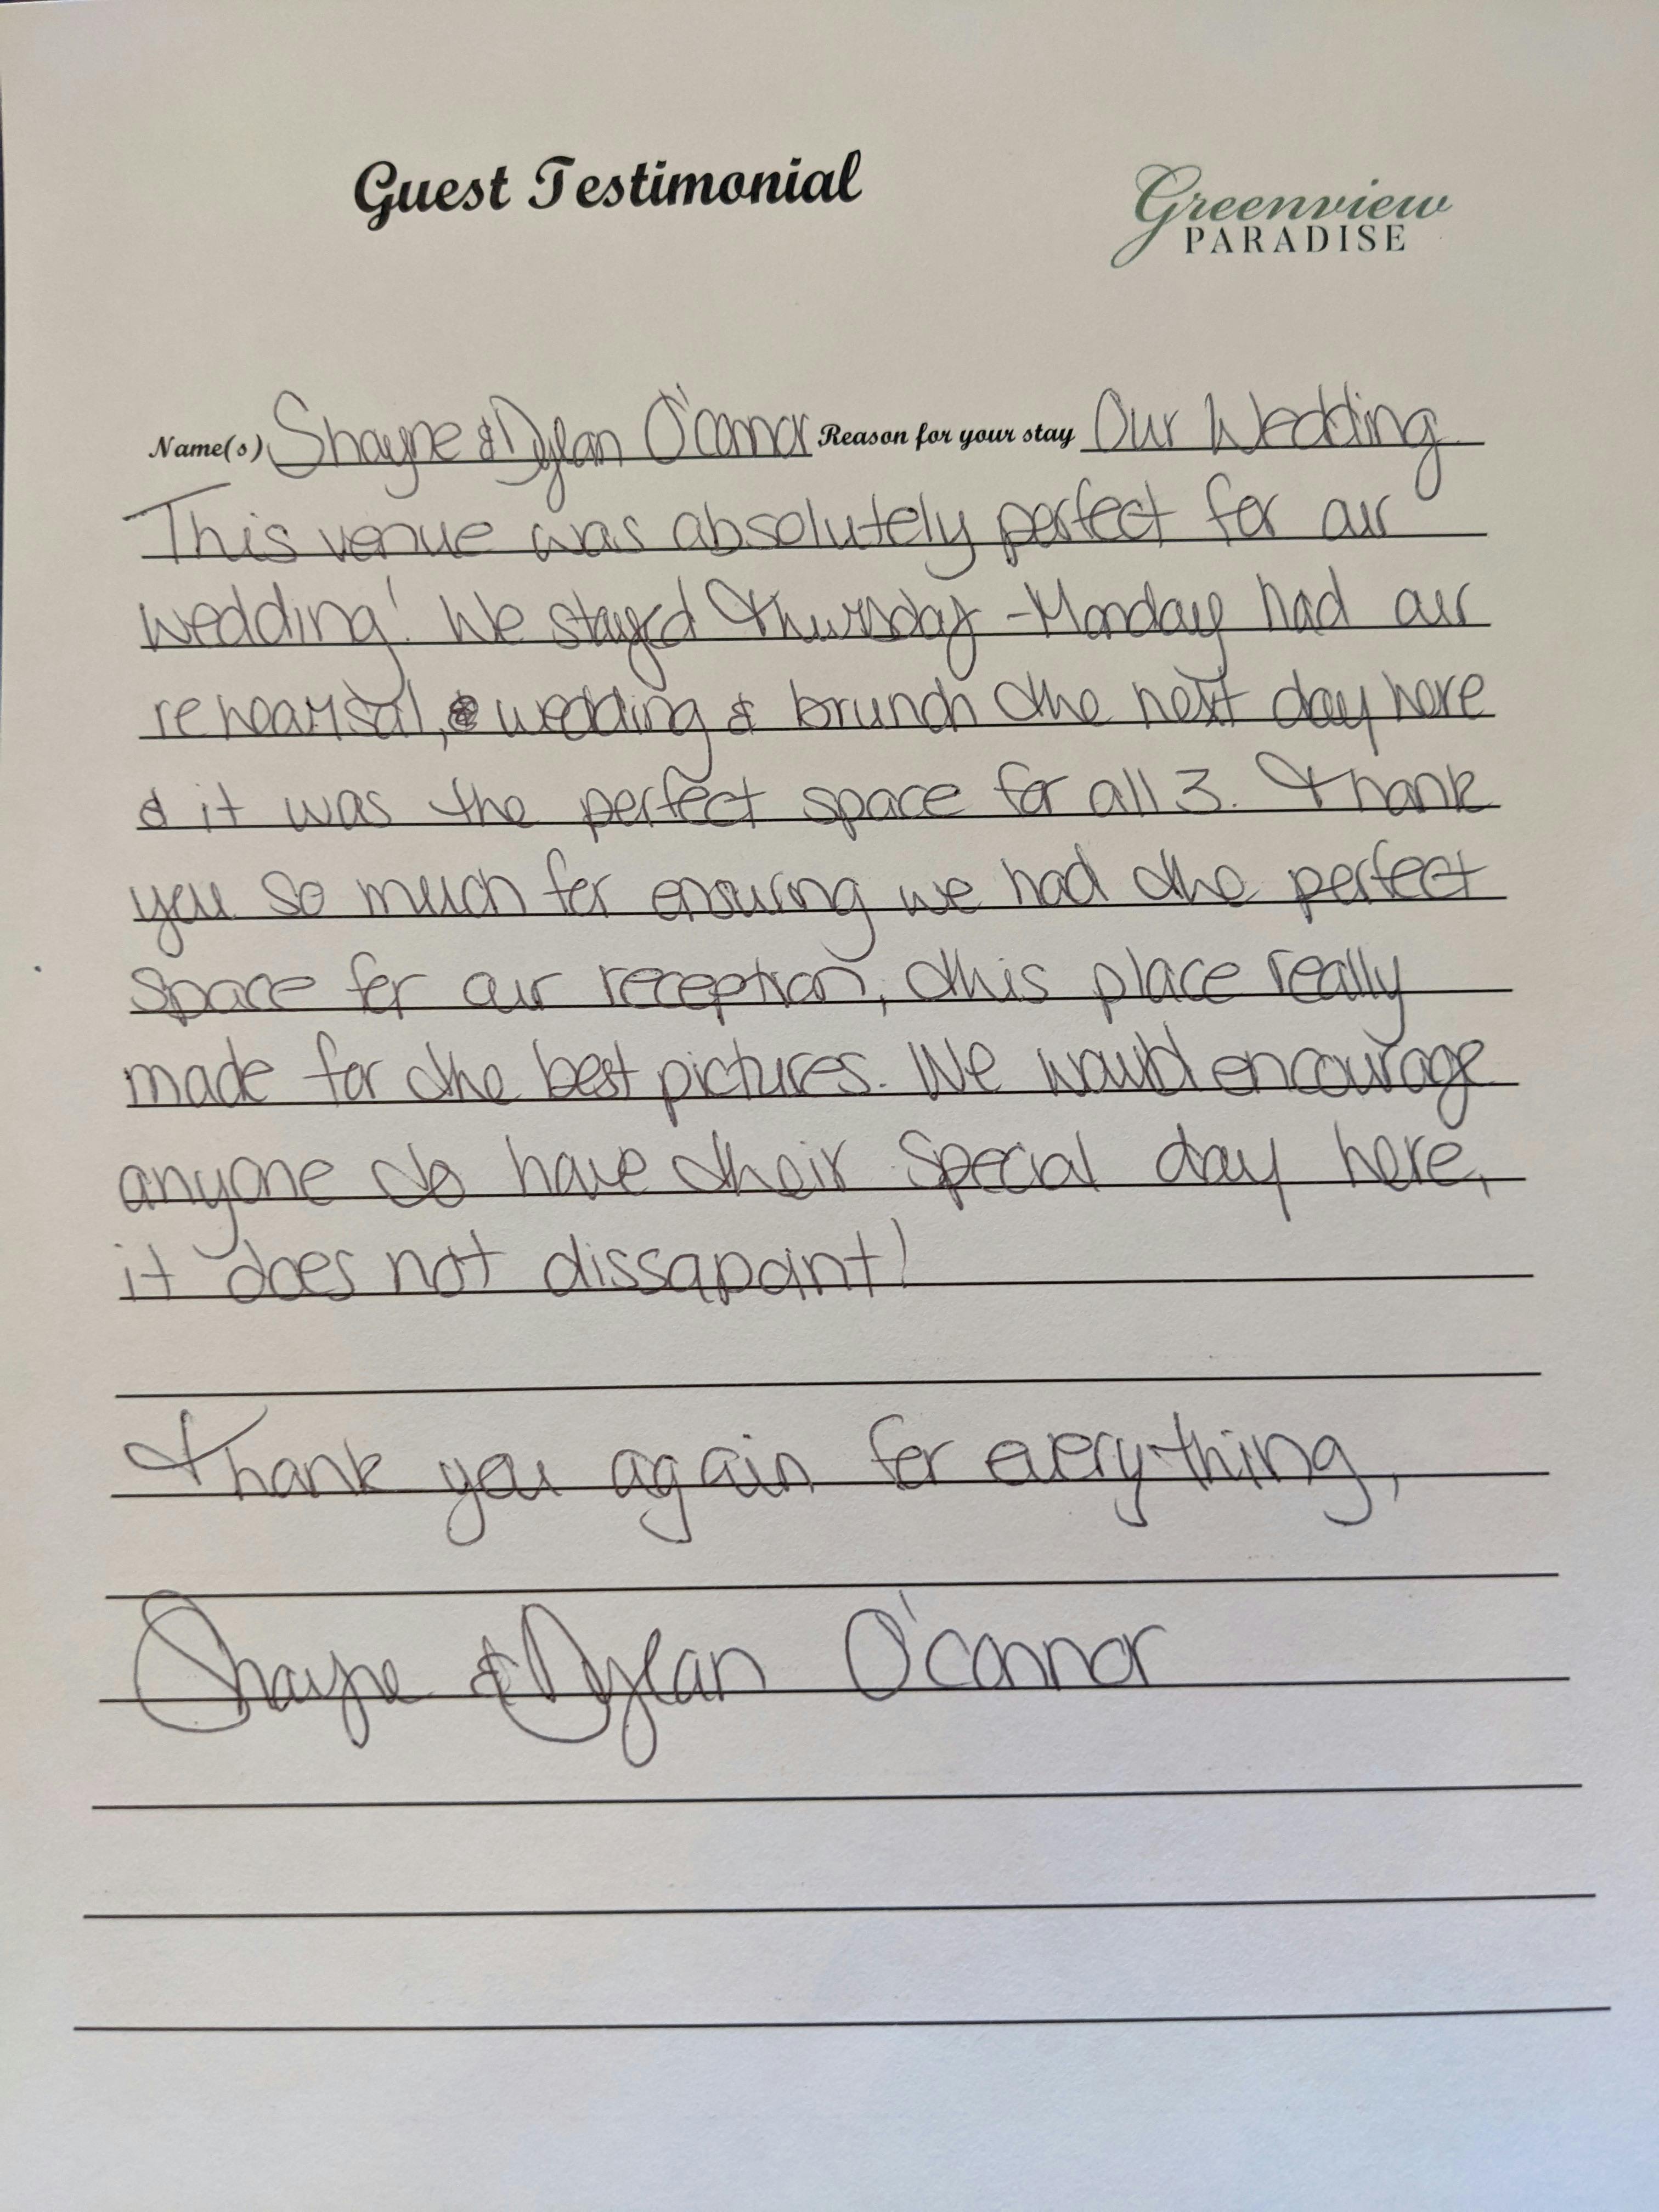 Guest Testimonial
Greenview
PARADISE
Name(s) Shayne & Dylan O'Connor Reason for your stay Our Wedding
This venue was absolutely perfect for our
wedding! We stayed Thursday - Monday had our
rehearsal, wedding & brunch the next day here
& it was the perfect space for all 3. Thank
you so much for ensuring we had the perfect
space for our reception, this place really
made for the best pictures. We would encourage
anyone to have their special day here,
it does not dissapoint!
Thank you again for everything,
Shayne & Dylan O'Connor